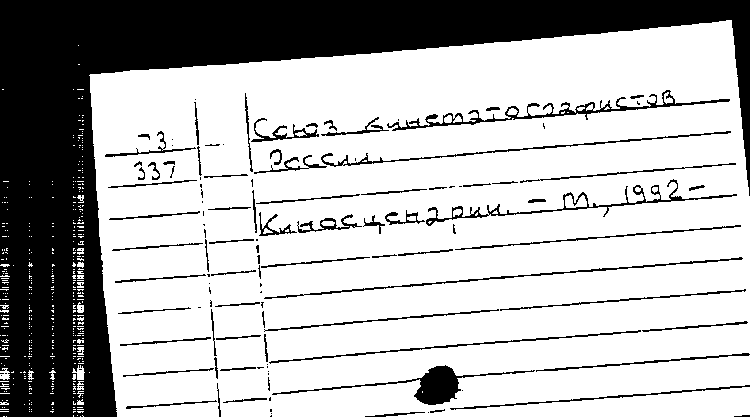 П3
337
Союз кинематографистов
России.
Киносценарии. – М., 1992–